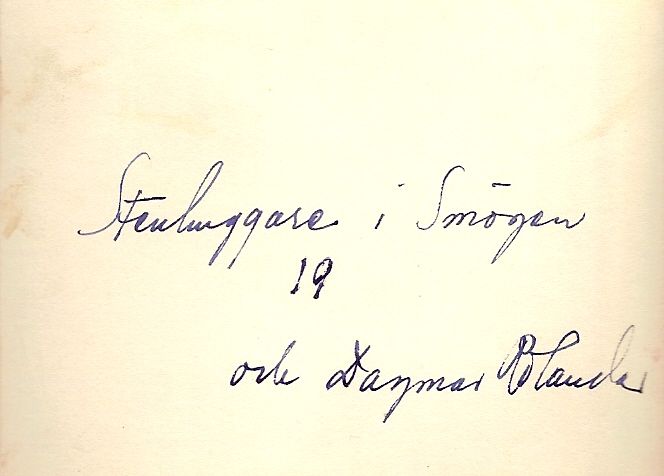 Stenhuggare i Smögen
19
och Dagmar